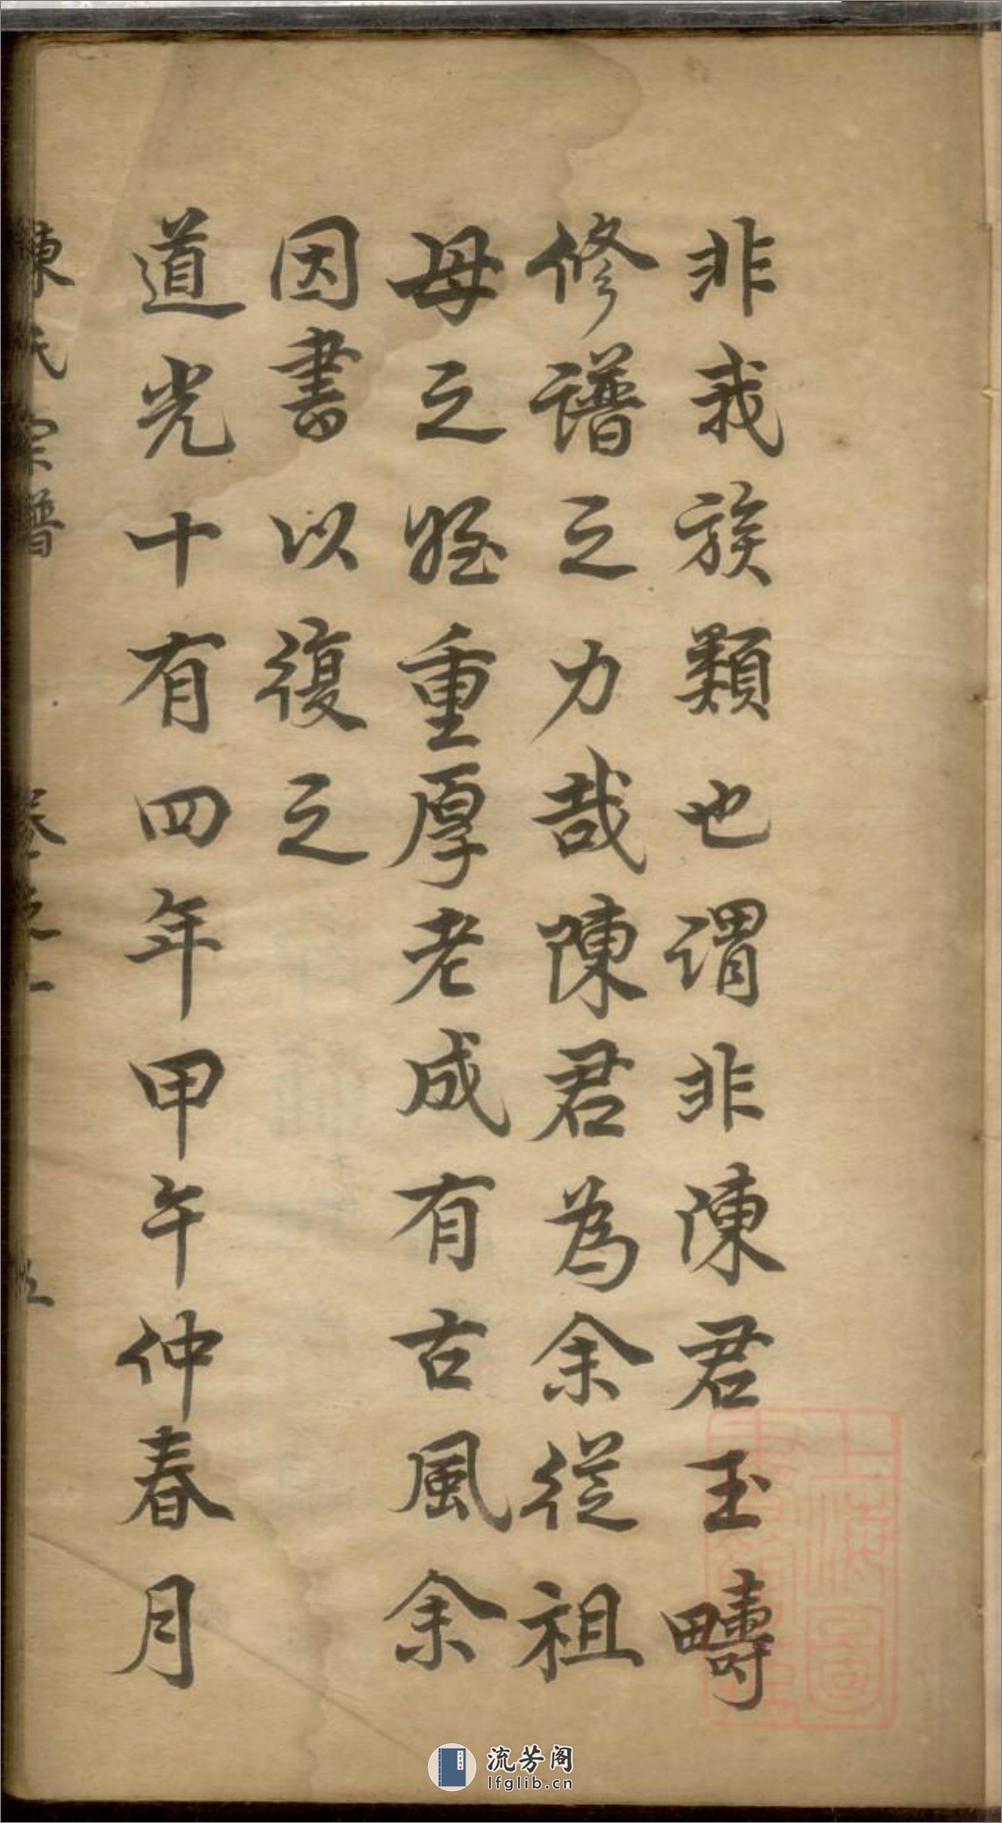 非我族類也謂非陳君玉疇
修譜之力哉陳君為余從祖
母之姪重厚老成有古風余
因書以復之
道光十有四年甲午仲春月
陳氏宗譜 卷之一
流芳阁
lfglib.cn